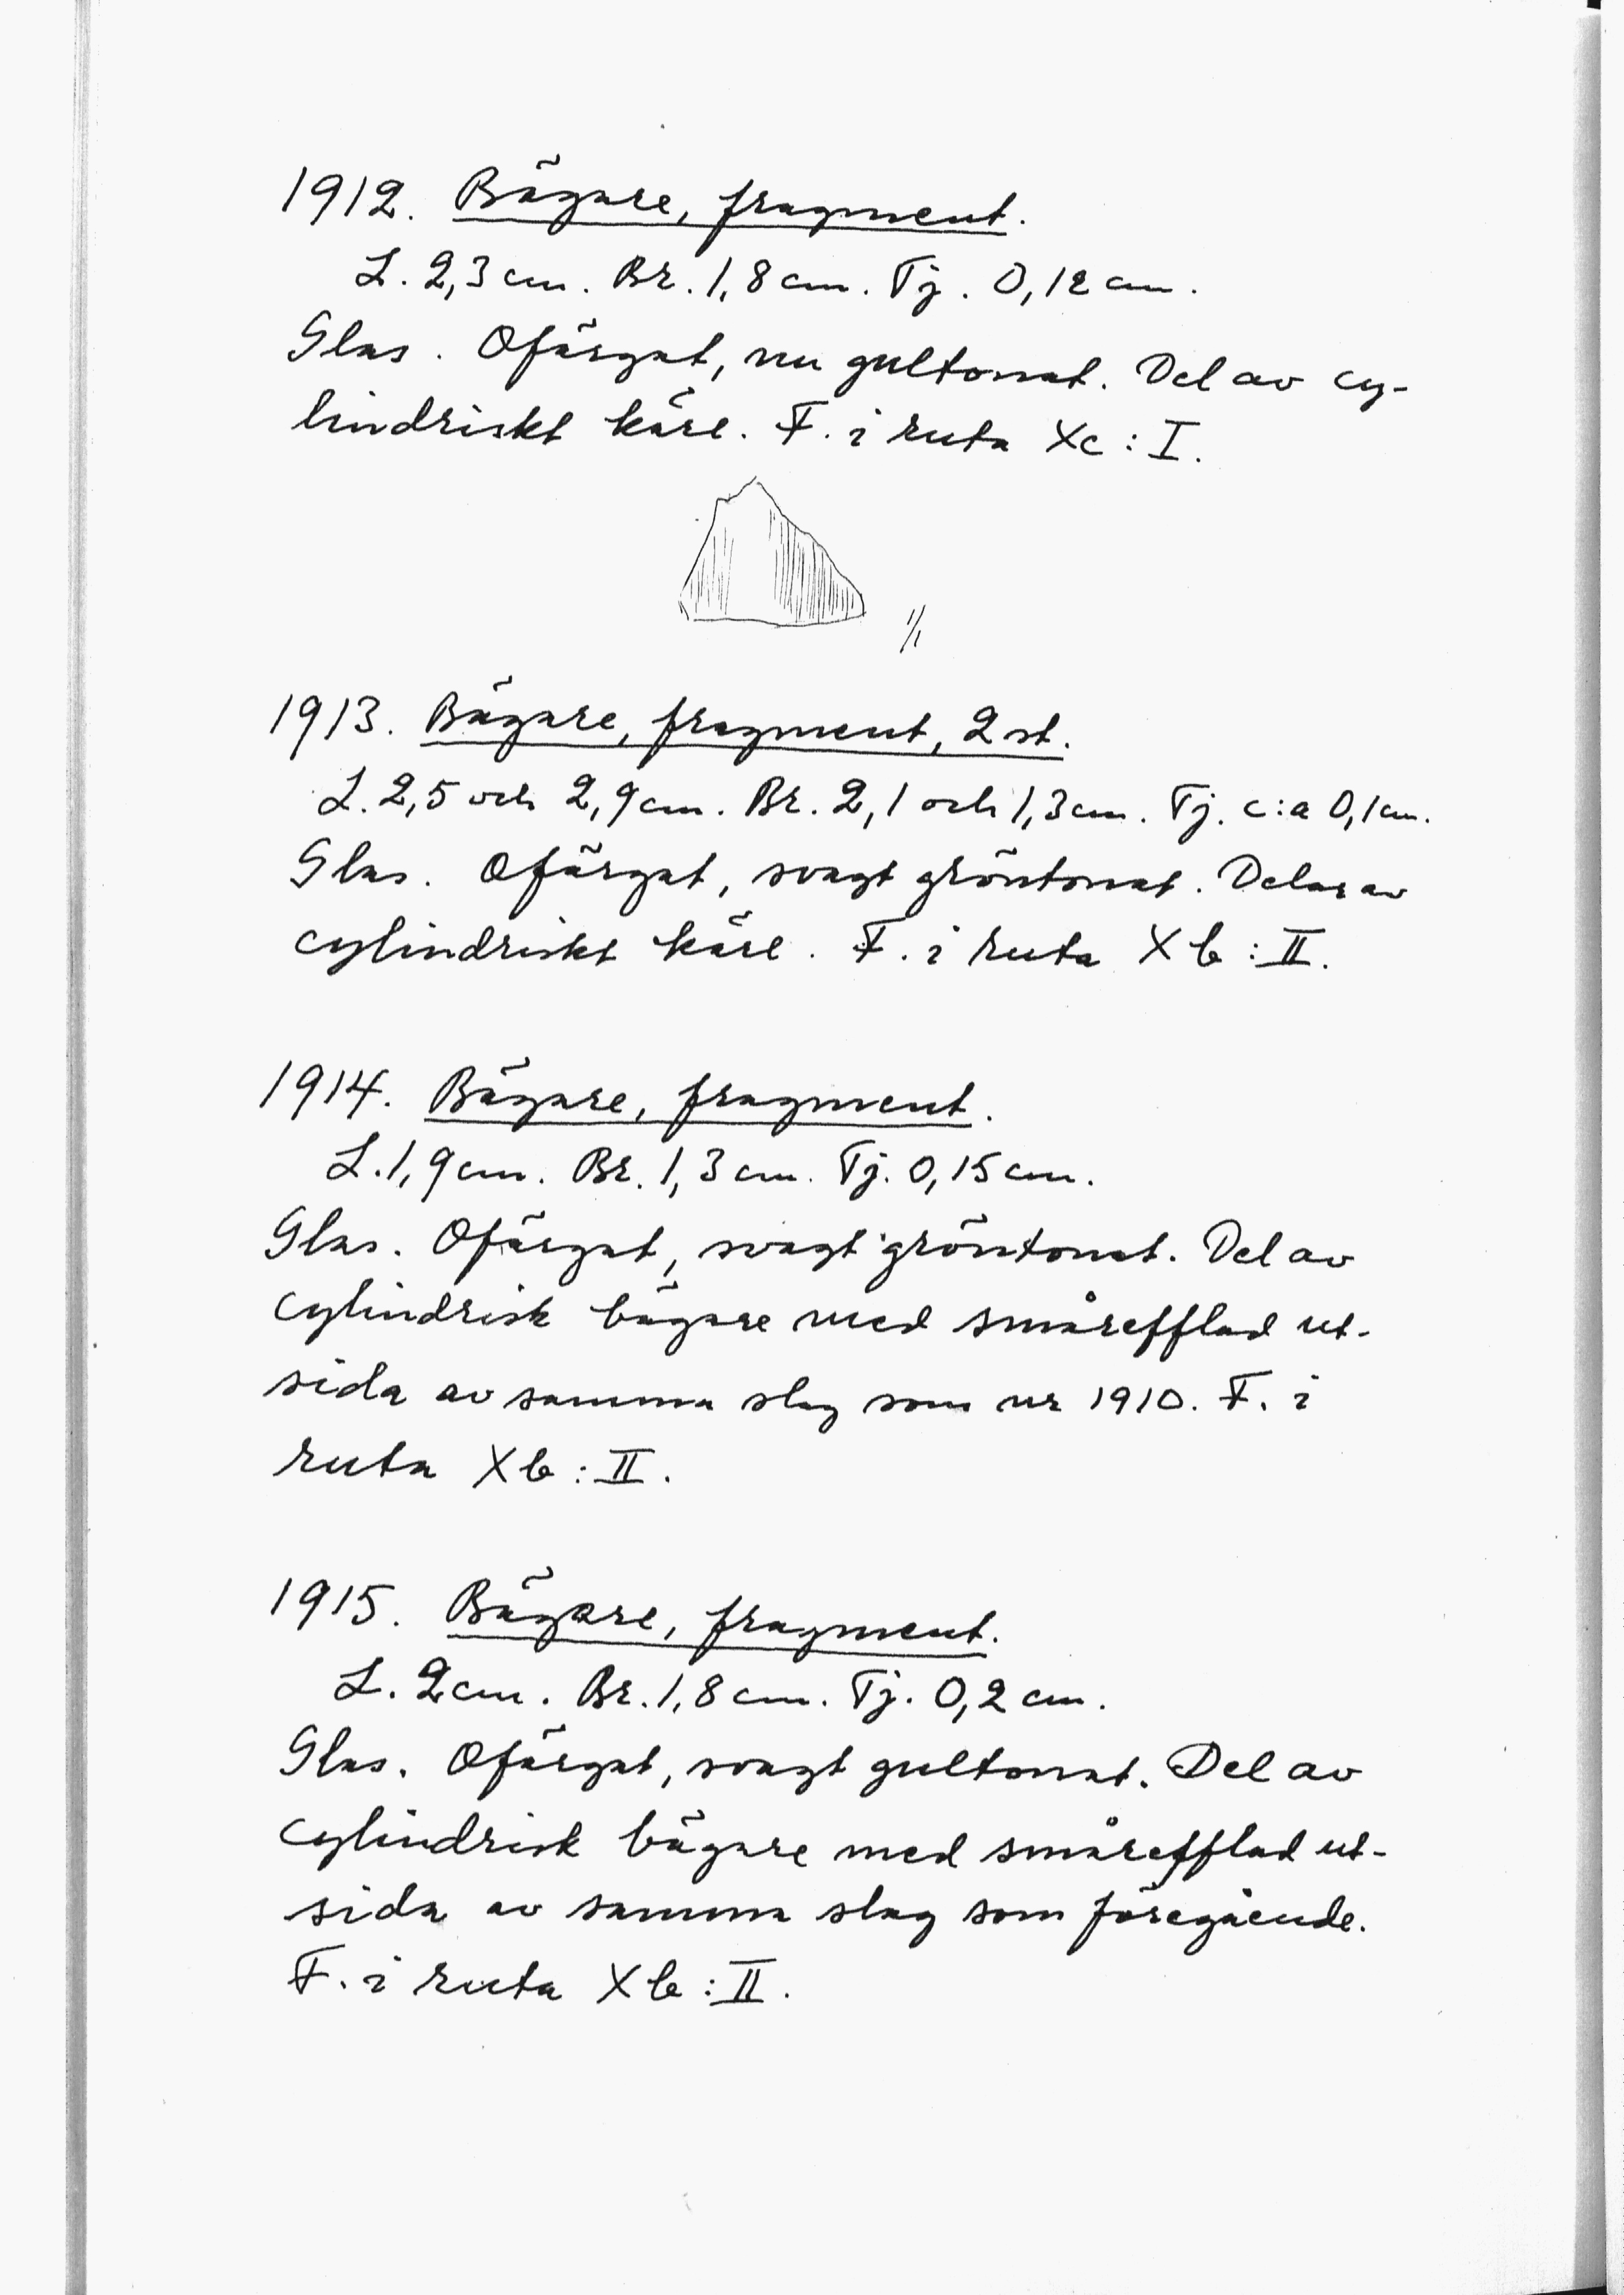 1912. Bägare, fragment.
L. 2,3 cm. Br. 1,8 cm. Tj. 0,12 cm.
Glas. Ofärgat, nu gultonat. Del av cy-
lindriskt kärl. F. i ruta Xc : I.
1/1
1913. Bägare, fragment, 2 st.
L. 2,5 och 2,9 cm. Br. 2,1 och 1,3 cm. Tj. c:a 0,1 cm.
Glas. Ofärgat, svagt gröntonat. Delar av
cylindriskt kärl. F. i ruta Xb : II.
1914. Bägare, fragment.
L. 1,9 cm. Br. 1,3 cm. Tj. 0,15 cm.
Glas. Ofärgat, svagt gröntonat. Del av
cylindrisk bägare med smårefflad ut-
sida av samma slag som nr 1910. F. i
ruta Xb : II.
1915. Bägare, fragment.
L. 2 cm. Br. 1,8 cm. Tj. 0,2 cm.
Glas. Ofärgat, svagt gultonat. Del av
cylindrisk bägare med smårefflad ut-
sida av samma slag som föregående.
F. i ruta Xb : II.